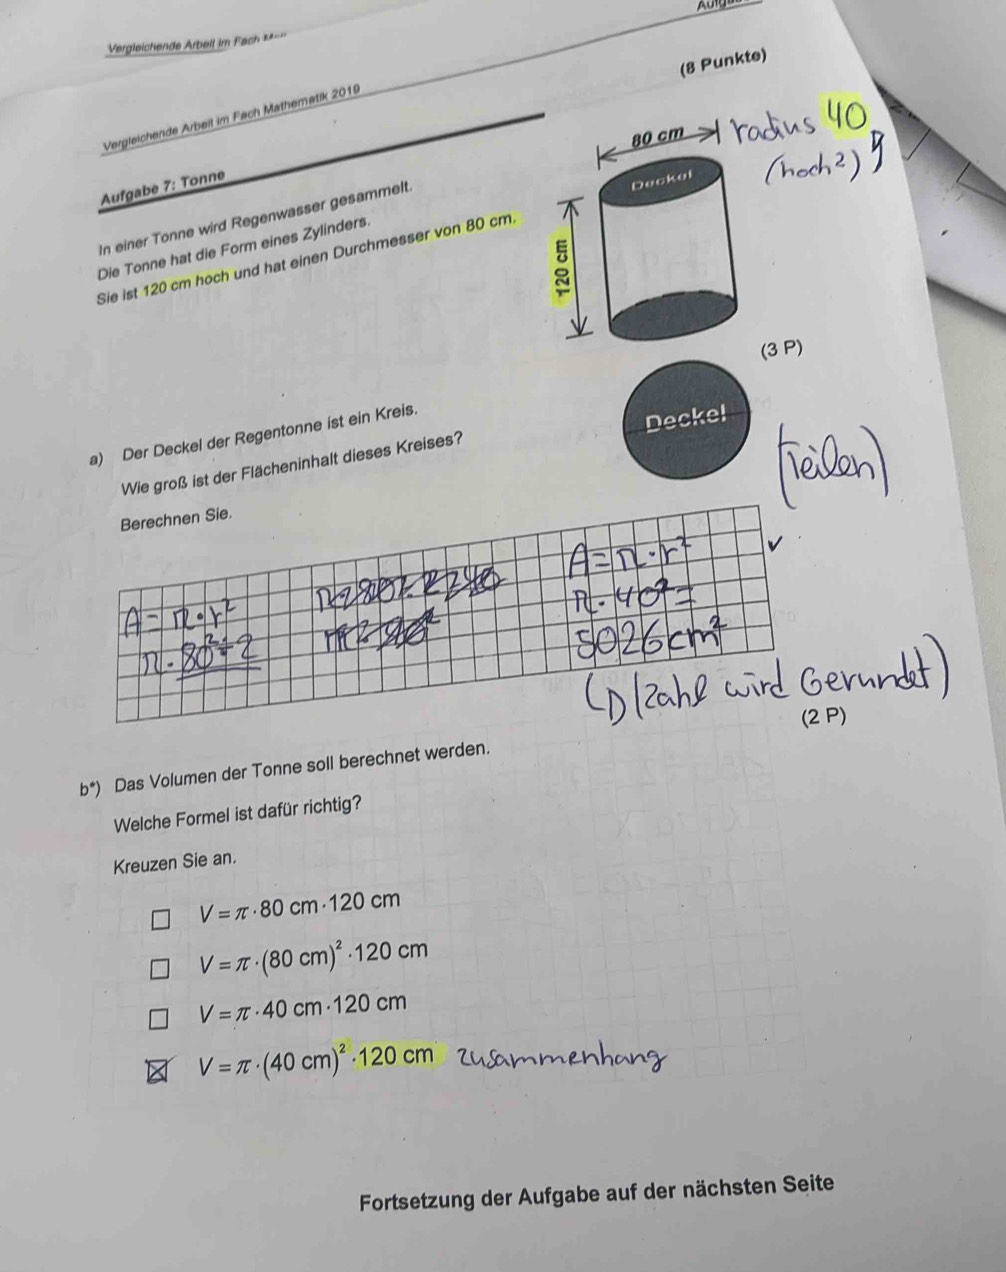 Vergleichende Arbeit im Fach
Vergleichende Arbeit im Fach Mathematik 2019
(8 Punkte)
Aufgabe 7: Tonne
In einer Tonne wird Regenwasser gesammelt.
Die Tonne hat die Form eines Zylinders.
Sie ist 120 cm hoch und hat einen Durchmesser von 80 cm.
80 cm
radius 40
(hoch²)
Deckel
120 cm
(3 P)
a) Der Deckel der Regentonne ist ein Kreis.
Wie groß ist der Flächeninhalt dieses Kreises?
Berechnen Sie.
Deckel
(Teilen)
A = π · r²
π · 80² ÷ 2
A = π · r²
π · 40² =
5026 cm²
✓
(D/Zahl wird Gerundet)
(2 P)
b*) Das Volumen der Tonne soll berechnet werden.
Welche Formel ist dafür richtig?
Kreuzen Sie an.
☐ V = π · 80 cm · 120 cm
☐ V = π · (80 cm)² · 120 cm
☐ V = π · 40 cm · 120 cm
☒ V = π · (40 cm)² · 120 cm zusammenhang
Fortsetzung der Aufgabe auf der nächsten Seite